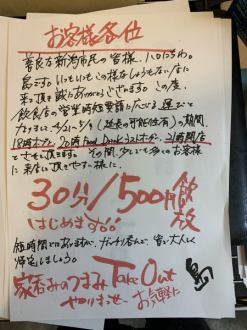 お客様各位
善良な新潟市民の皆様、ハロにちわ。
島です。いつもいつもこの様なしょうもない店に
来て頂き誠にありがとうございます。この度、
飲食店の営業時短要請に応じる運びと
なりまして、(延長の可能性有)の期間、
18時オープン、20時 Food Drink ラストオーダー、21時閉店
とさせて頂きます。その間、少しでも多くのお客様
に来店して頂きやすい様に、
30分/500円飲放
はじめます!!
短時間ではありますが、ガッチリ呑んで、皆で大人しく
帰宅しましょう。
家呑みのつまみ Take Out
やります お気軽に
島